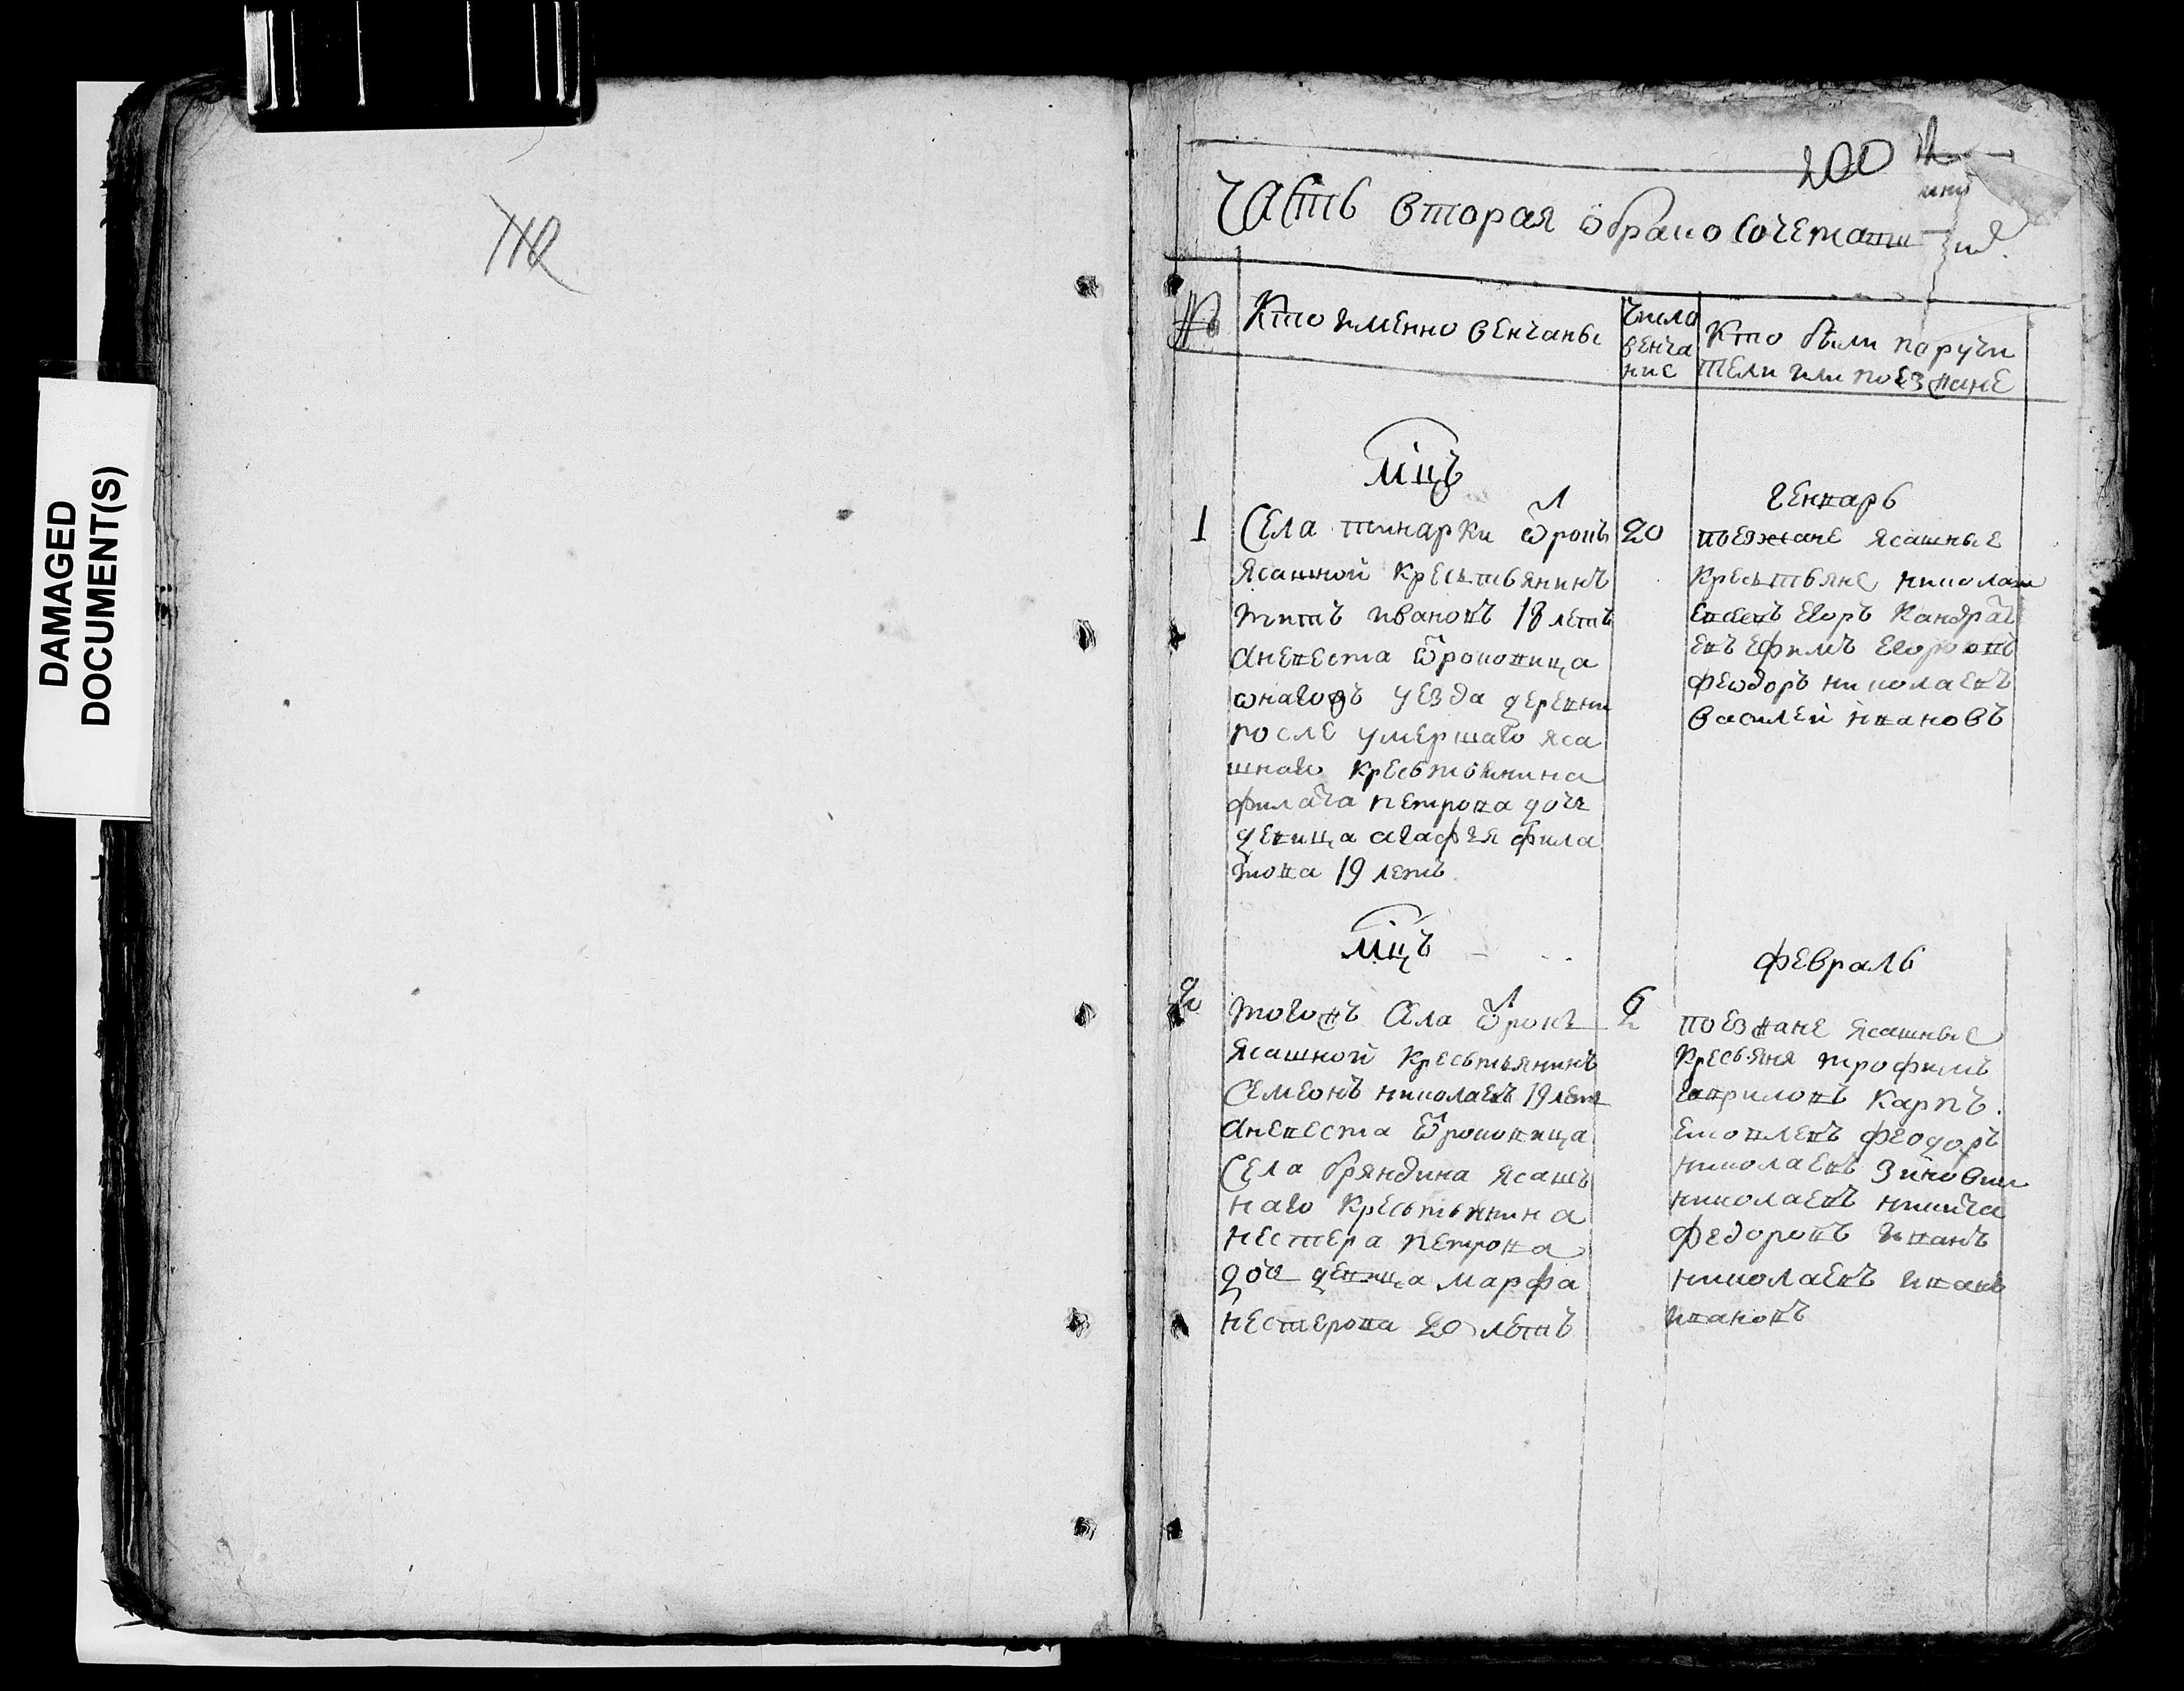 DAMAGED
DOCUMENT(S)
200
Часть вторая ѡ бракосочета
№
Кто именно венчаны
Число
венча
ние
Кто были поручи
тели или поезжане
мцъ
генварь
1
Села тинарки ѿрокъ
20
ясашной кресьтьянинъ
титъ ивановъ 18 летъ
аневеста ѿроковица
ѡнагожъ уезда деревни
после умершаго яса
шнаго кресьтьянина
филата петрова дочь
девица агафея фила
това 19 летъ
поезжане ясашные
кресьтьяне николаи
егоръ кандрат
евъ ефимъ егоровъ
феѡдоръ николаевъ
василей ивановъ
мцъ
февраль
2
тогожъ села ѿрокъ
6
ясашной кресьтьянинъ
семеонъ николаевъ 19 летъ
аневеста ѿроковица
села бряндина ясашъ
наго кресьтьянина
нестера петрова
дочь девица марфа
нестерова 20 летъ
поезжане ясашные
кресьяня трофимъ
гавриловъ карпъ
феодоръ
николаевъ зиновии
николаевъ никита
федоровъ иванъ
николаевъ иванъ
ивановъ